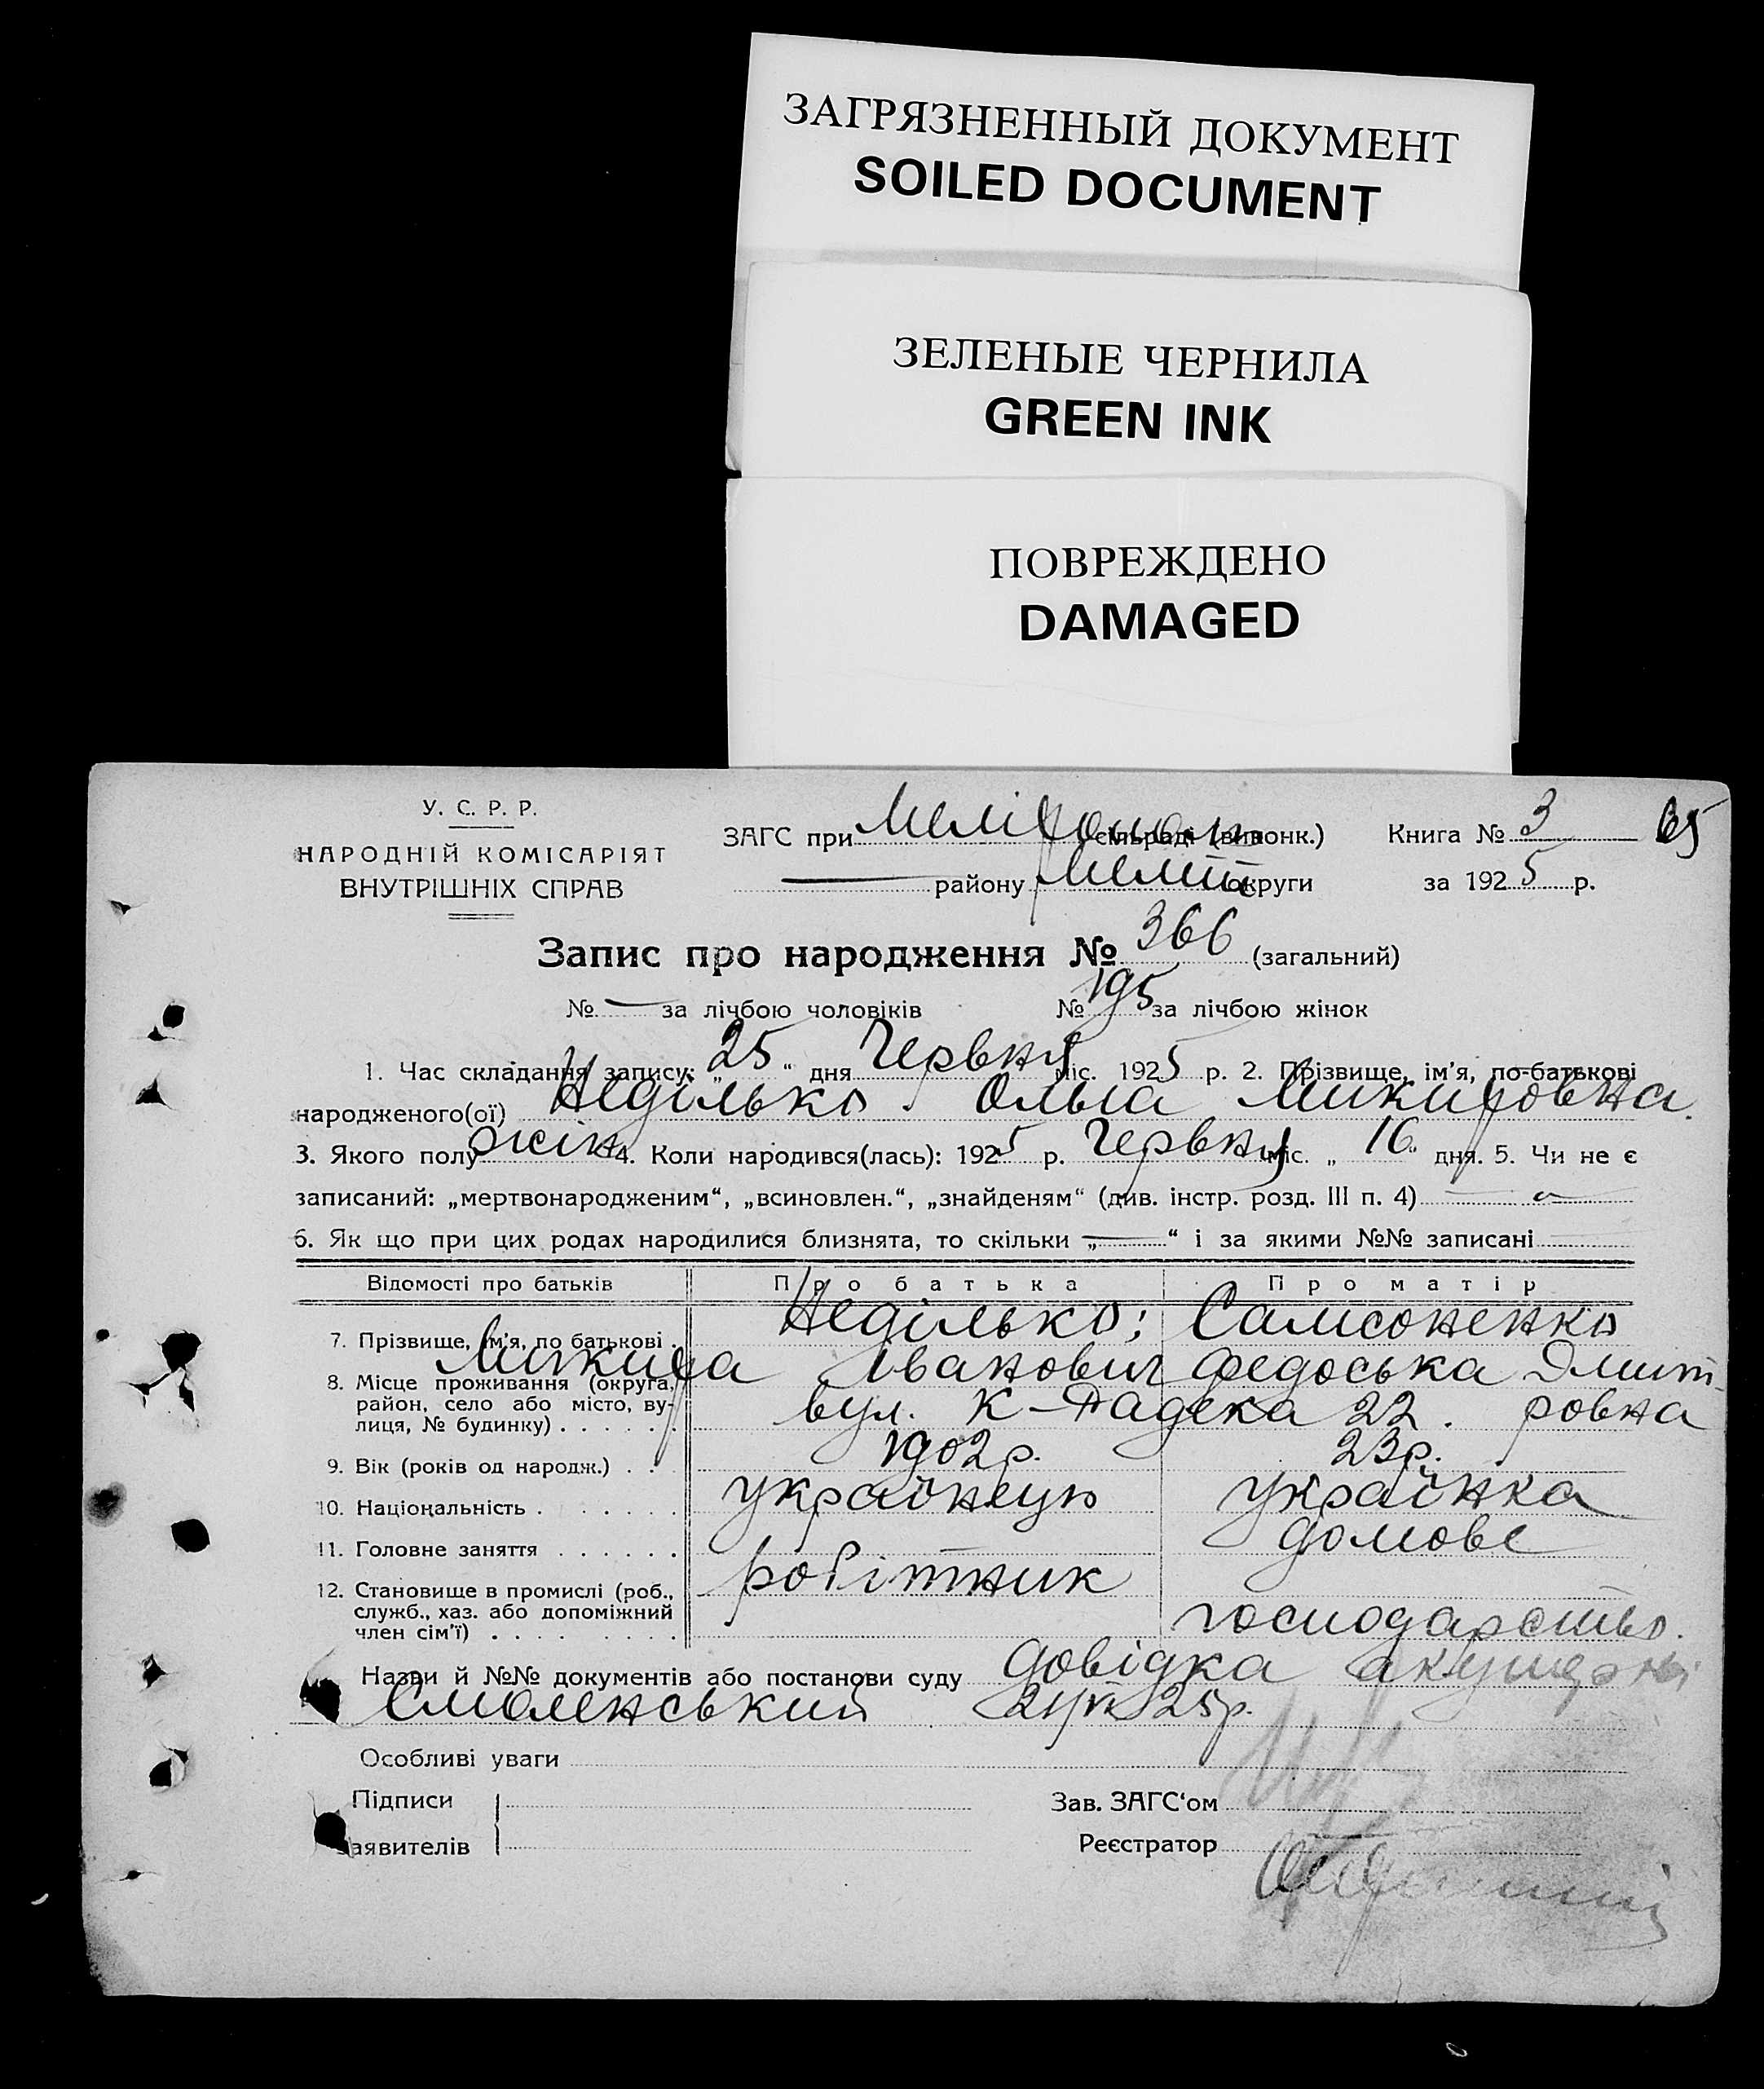 ЗАГРЯЗНЕННЫЙ ДОКУМЕНТ
SOILED DOCUMENT
ЗЕЛЕНЫЕ ЧЕРНИЛА
GREEN INK
ПОВРЕЖДЕНО
DAMAGED
У. С. Р. Р.
НАРОДНІЙ КОМІСАРІЯТ
ВНУТРІШНІХ СПРАВ
ЗАГС при сільраді (виконк.) Книга № 3 65
— району Меліт округи за 1925 р.
Запис про народження № 366 (загальний)
№ — за лічбою чоловіків № 195 за лічбою жінок
1. Час складання запису: „25“ дня Червня міс. 1925 р. 2. Прізвище, ім’я, по-батькові
народженого(ої) Неділько Ольга Микифовна.
3. Якого полу жін 4. Коли народився(лась): 1925 р. Червня міс. „16“ дня. 5. Чи не є
записаний: „мертвонародженим“, „всиновлен.“, „знайденям“ (див. інстр. розд. III п. 4) —
6. Як що при цих родах народилися близнята, то скільки „—“ і за якими №№ записані
Відомості про батьків Про батька Про матір
7. Прізвище, ім’я, по батькові . Неділько; Самсоненко
Микифа Іванович Федоська Дмит-
8. Місце проживання (округа, район, село або місто, ву-
лиця, № будинку) . . . . . . вул. К-Радека 22. ровна
9. Вік (років од народж.) . . . 1902 р. 23 р.
10. Національність . . . . . . українець українка
11. Головне заняття . . . . . . домове
12. Становище в промислі (роб., робітник
служб., хаз. або допоміжний
член сім’ї) . . . . . . . . господарство.
Назви й №№ документів або постанови суду довідка акушерки
Смоленський 25р.
Особливі уваги
Підписи Зав. ЗАГС‘ом
заявителів Реєстратор